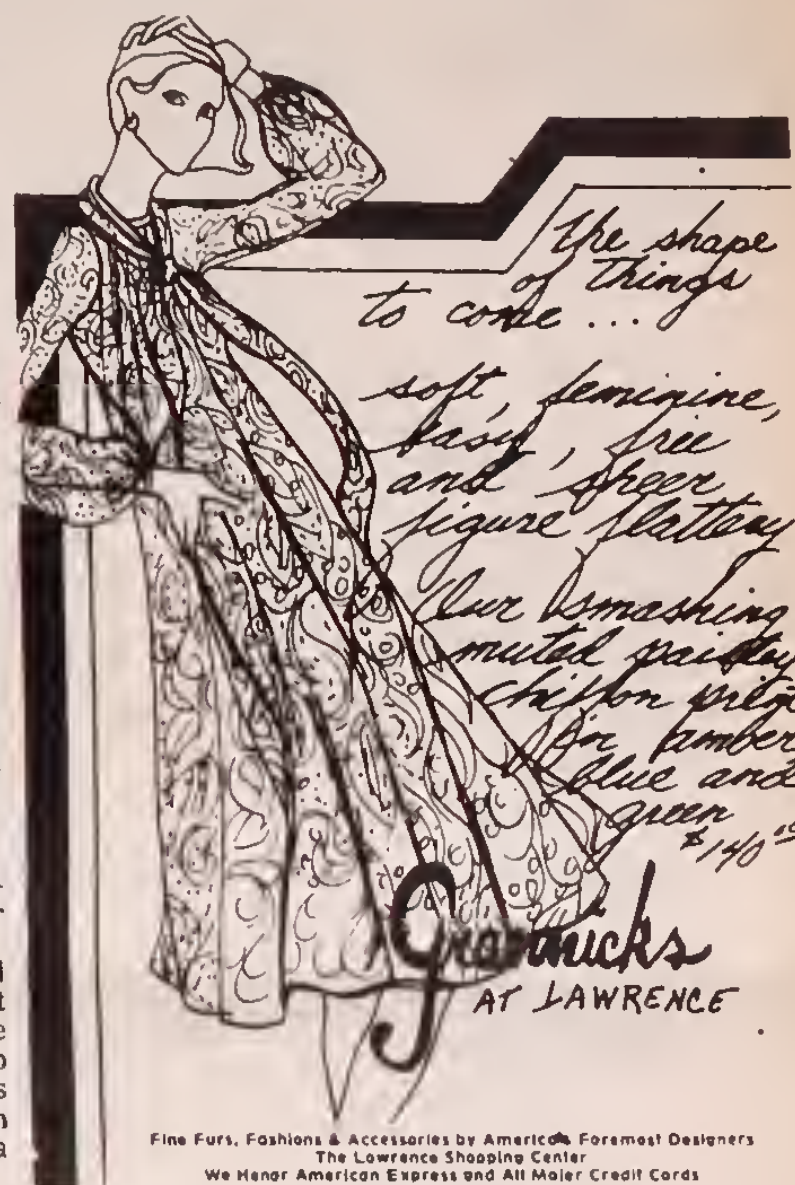 the shape
of things
to come ...
soft, feminine,
easy, free
and sheer
figure flattery
Our smashing
muted paisley
chiffon print
in amber
blue and
green
$140.00
AT LAWRENCE
Fine Furs, Fashions & Accessories by America's Foremost Designers
The Lawrence Shopping Center
We Honor American Express and All Major Credit Cards